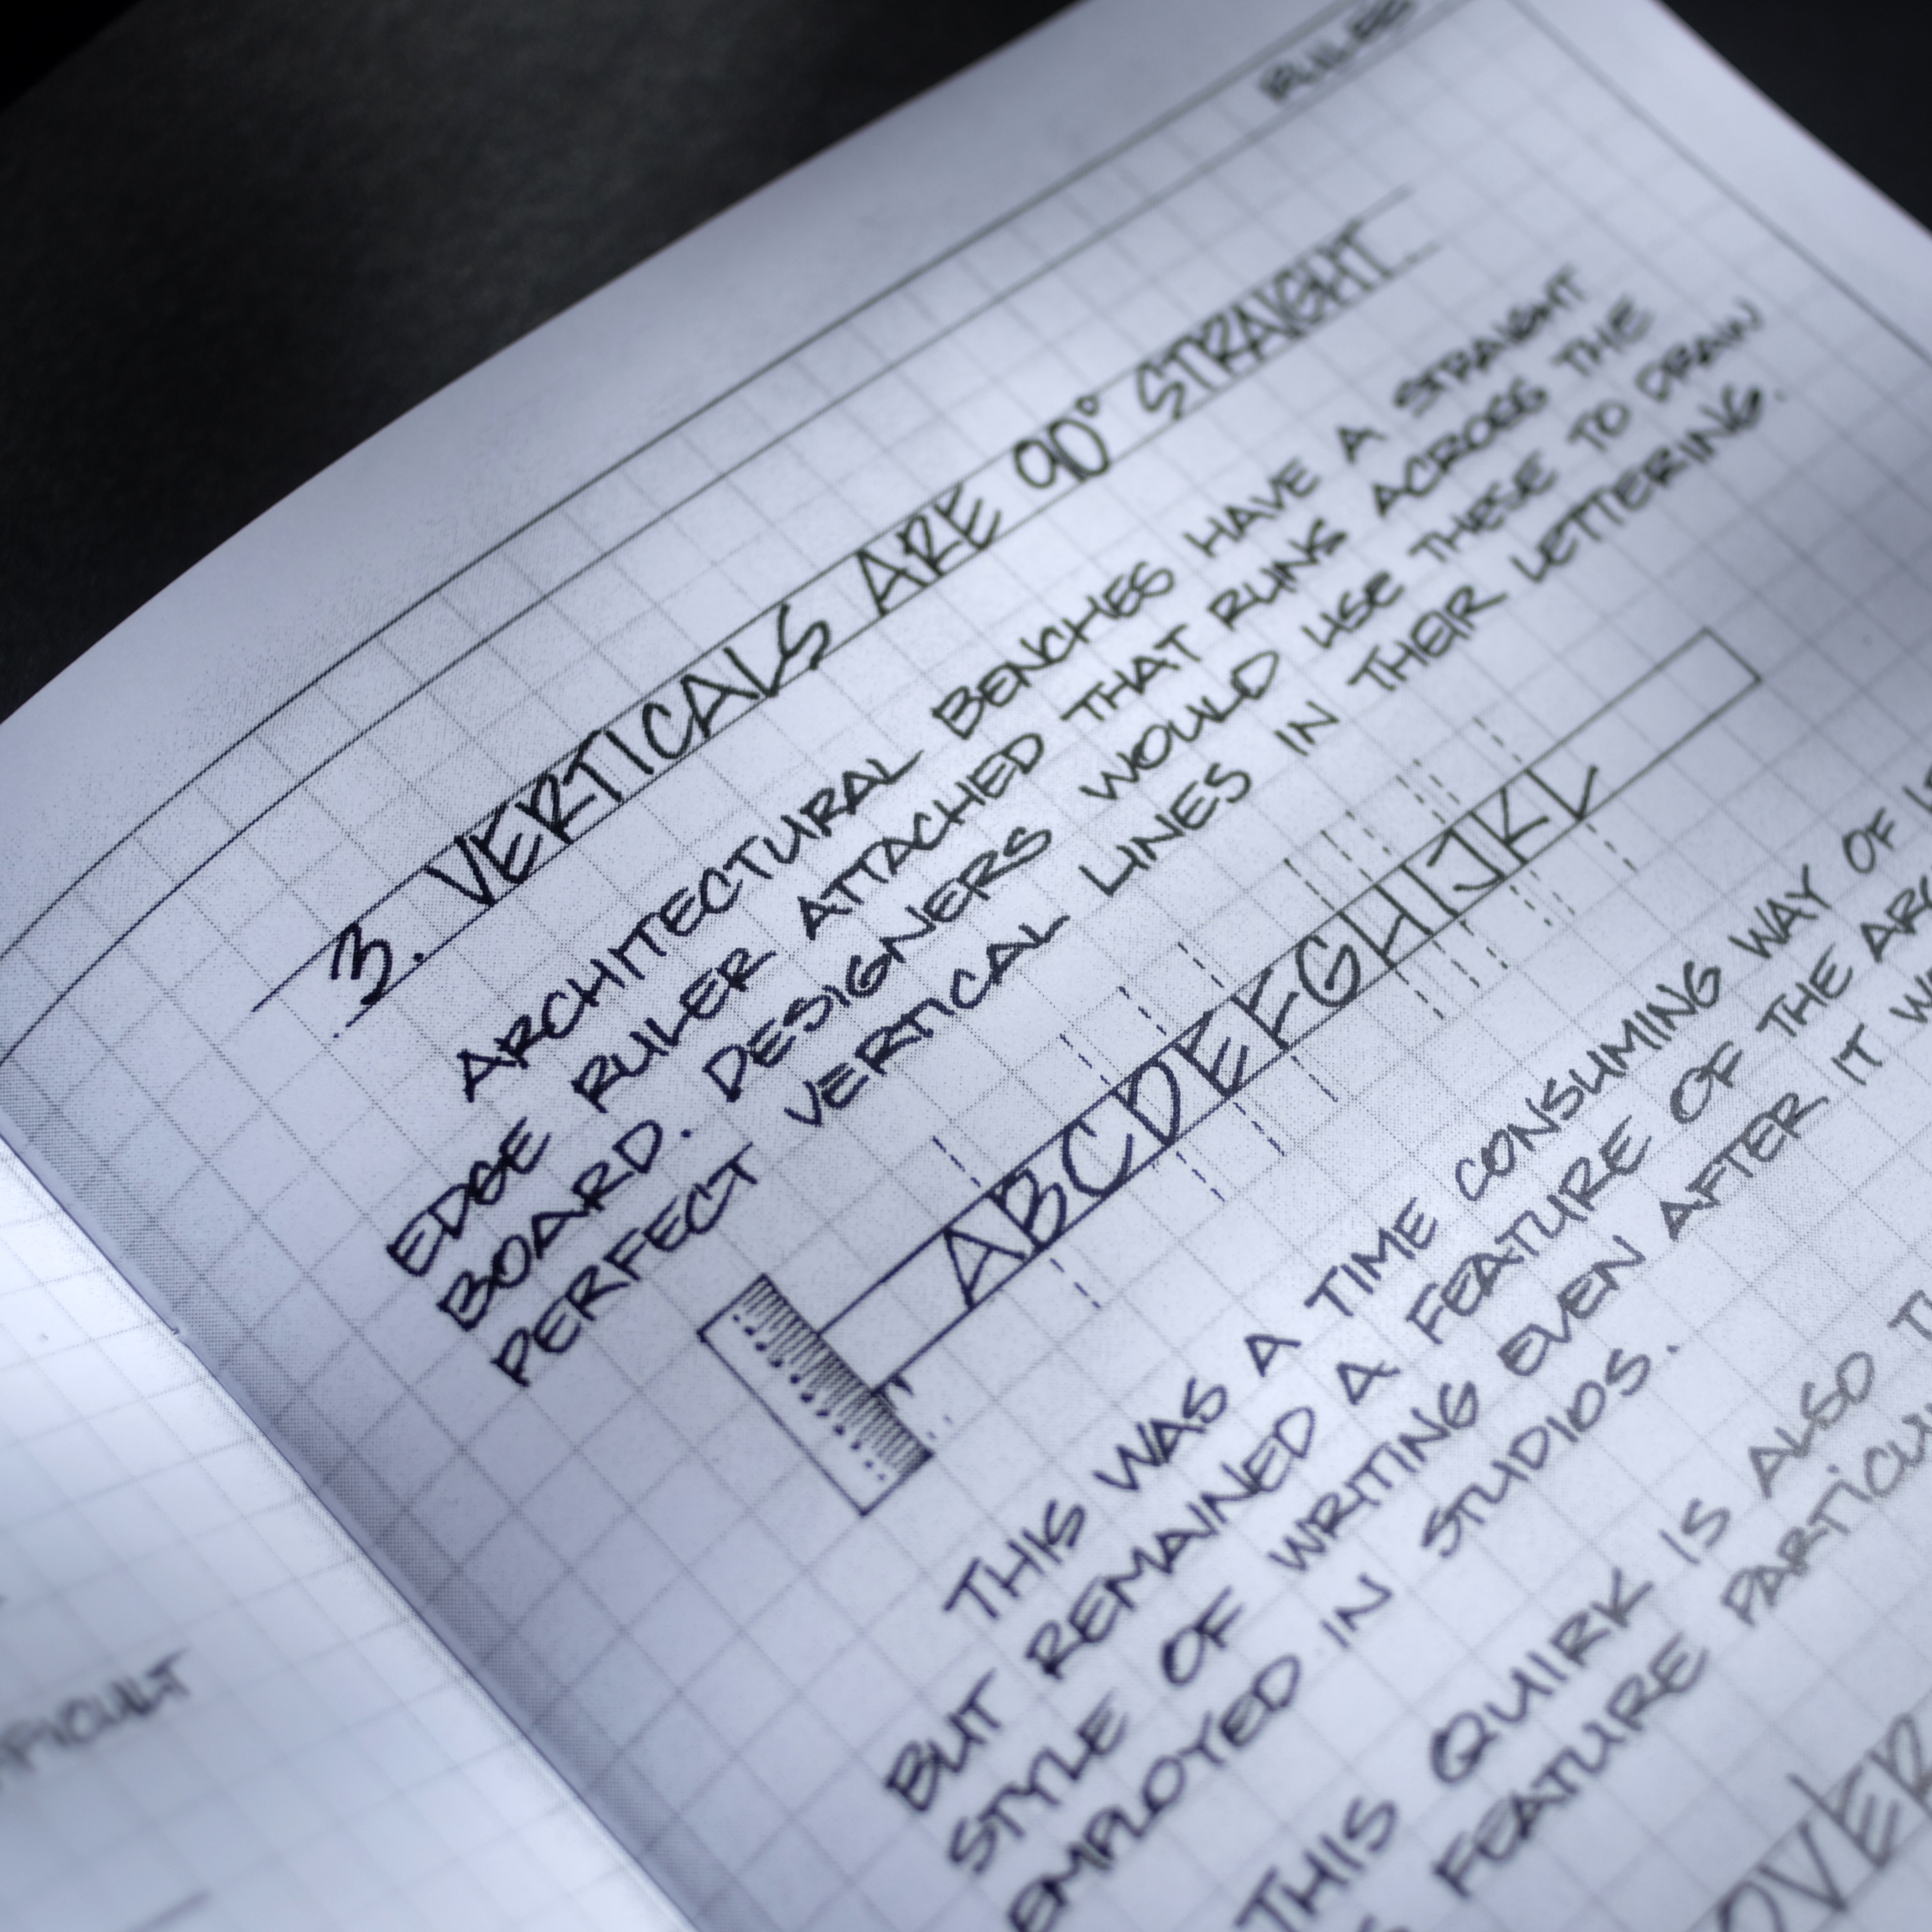 RULES
3. VERTICALS ARE 90° STRAIGHT
ARCHITECTURAL BENCHES HAVE A STRAIGHT
EDGE RULER ATTACHED THAT RUNS ACROSS THE
BOARD. DESIGNERS WOULD USE THESE TO DRAW
PERFECT VERTICAL LINES IN THEIR LETTERING.
ABCDEFGHIJKL
THIS WAS A TIME CONSUMING WAY OF
BUT REMAINED A FEATURE OF THE
STYLE OF WRITING EVEN AFTER IT
EMPLOYED IN STUDIOS.
THIS QUIRK IS ALSO
FEATURE